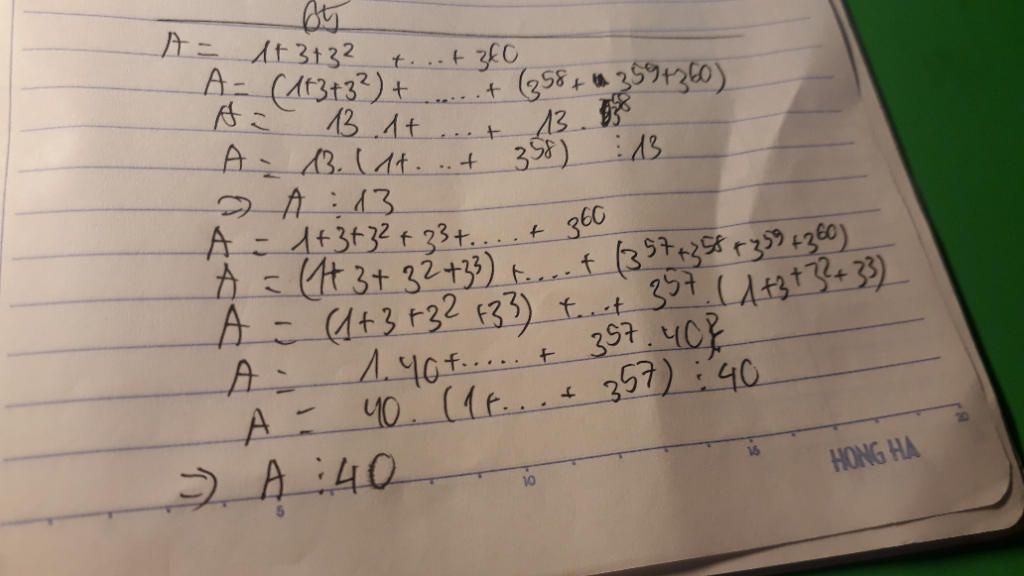 A = 1+3+3² +...+ 3⁶⁰
A = (1+3+3²)+ ......+ (3⁵⁸ + 3⁵⁹+3⁶⁰)
A = 13.1+ ...+ 13. 3⁵⁸
A = 13.(1+...+ 3⁵⁸) ⋮13
⇒ A ⋮13
A = 1+3+3²+3³+....+ 3⁶⁰
A = (1+3+3²+3³) +....+ (3⁵⁷+3⁵⁸+3⁵⁹+3⁶⁰)
A = (1+3+3²+3³) +...+ 3⁵⁷.(1+3+3²+3³)
A = 1.40+.....+ 3⁵⁷.40
A = 40. (1+...+ 3⁵⁷) ⋮40
⇒ A ⋮40
5 10 15 20
HONG HA